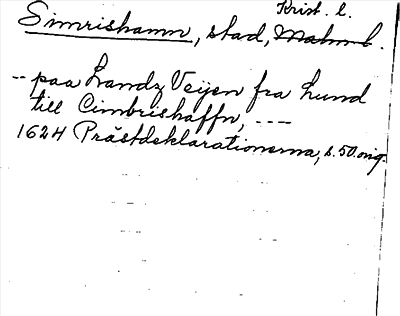 Krist. l.
Simrishamn, stad, Malm. l.
-- paa Landz Veijen fra Lund
till Cimbrishaffn, ----
1624 Prästdeklarationerna, s. 50. orig.